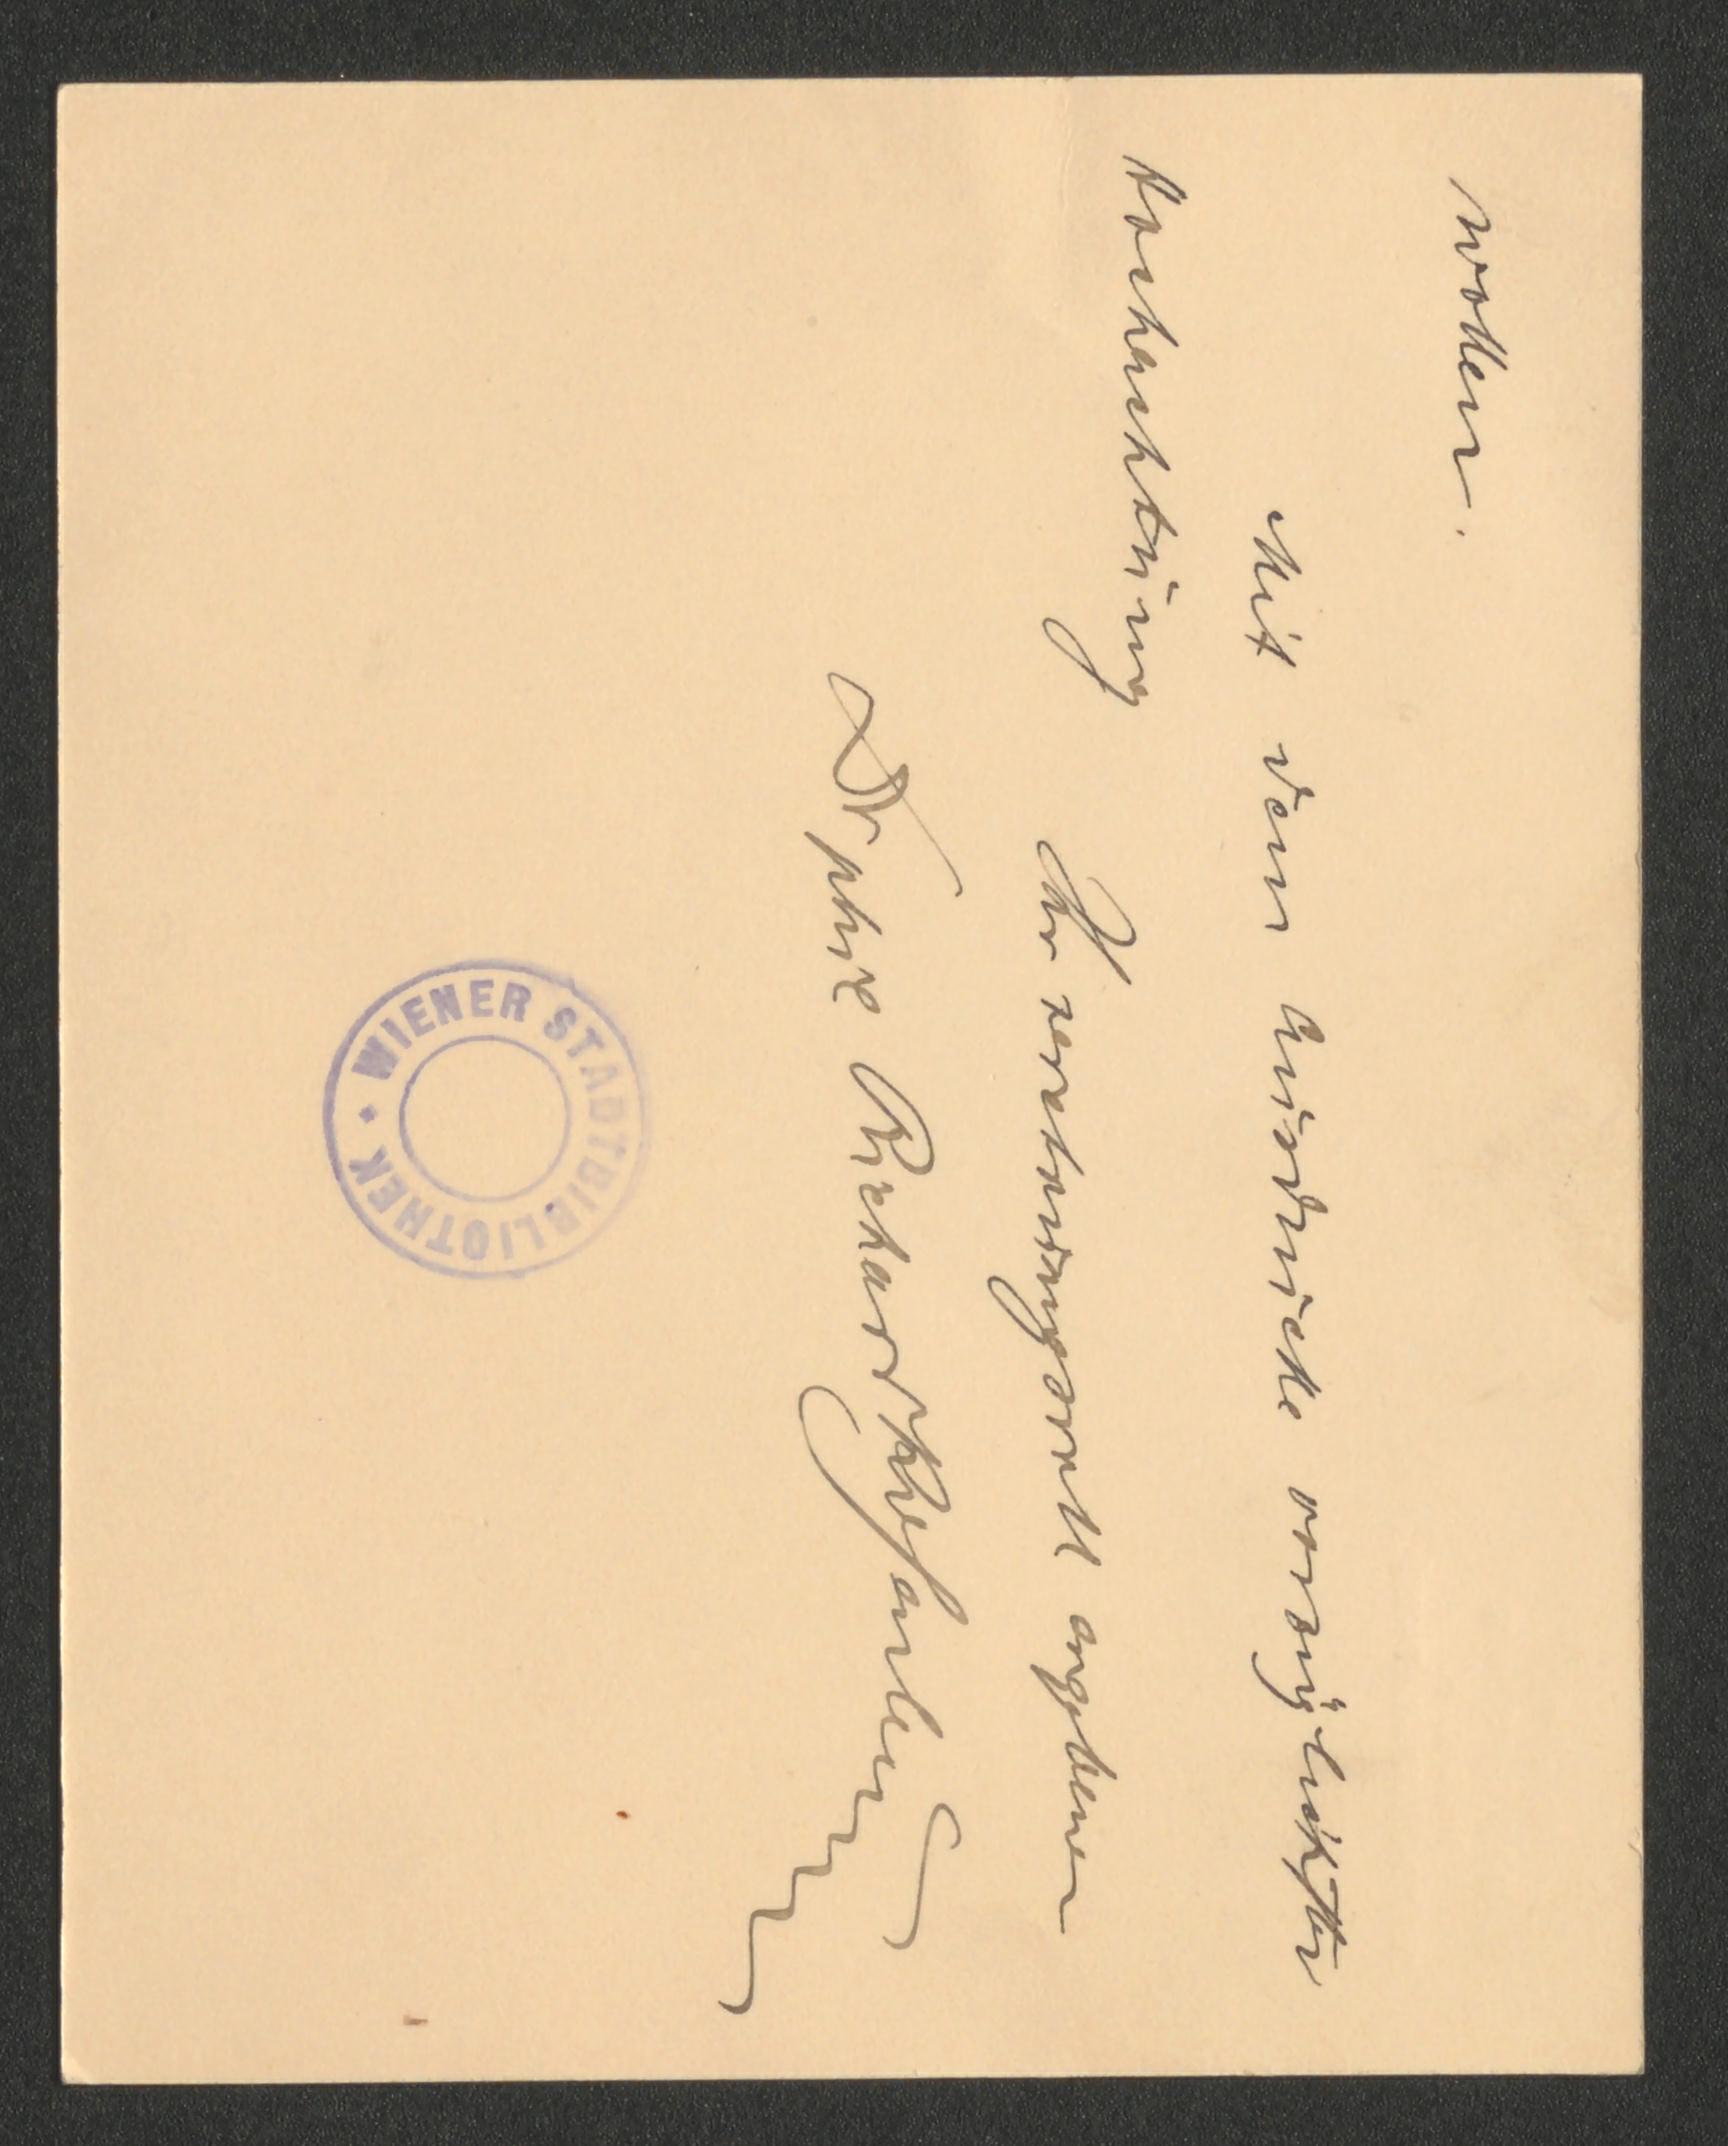 wollen.
Mit dem Ausdrucke vorzüglichster
Hochachtung
Ihr verehrungsvoll ergebener
Dr phil Richard
WIENER STADTBIBLIOTHEK